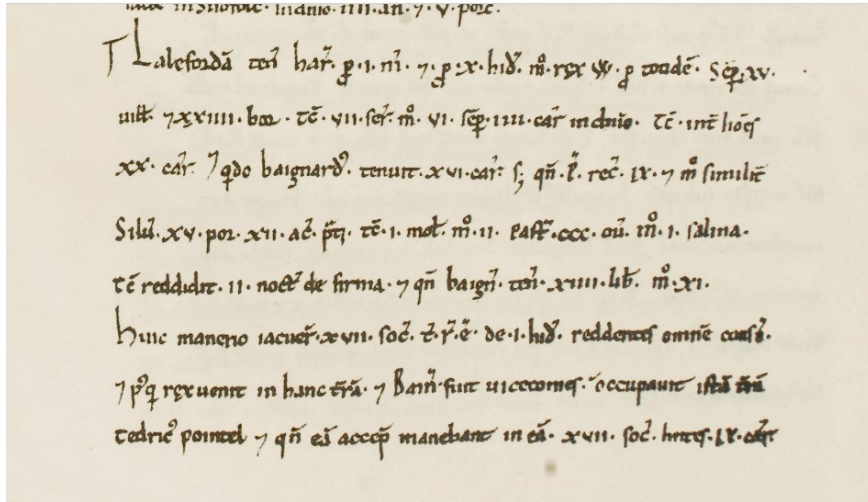 Lalefordā teñ har̃. p̱. i. m̃. 7 p̱. x. hid̃. m̊. rex W. p̱ totidē. Sēp̱. xv.
uill̃. 7 xxiiii. bor. T̄c̄. vii. ser̃. m̊. vi. sēp̱ iiii. car̃ in dnio. T̄c̄. int̃ hōes
xx. car̃. 7 qdo baignard᷒. tenuit. xvi. car̃. s; qñ. P̃. rec̃. ix. 7 m̊ similit̄
Silũ. xv. por. xii. ac̃. p̃ti. T̄c̄. i. mol̃. m̊. ii. Past̃. ccc. oũ. m̊. i. salina.
T̄c̄ reddidit. ii. noct̃ de firma. 7 qñ baigñ. teñ. xiiii. lib̃. m̊. xi.
Huic manerio iacuer̃. xvii. soc̃. t̃. r̃. ẽ. de. i. hid̃. reddentes omnē consũ.
7 p᷒q̃ rex uenit in hanc tr̃ā. 7 Bain̄ fuit uicecomes. occupauit istā tr̃ā
tedric᷒ pointel 7 qñ eā accep̃ manebant in eā. xvii. soc̃. hñtes. ix. car̃